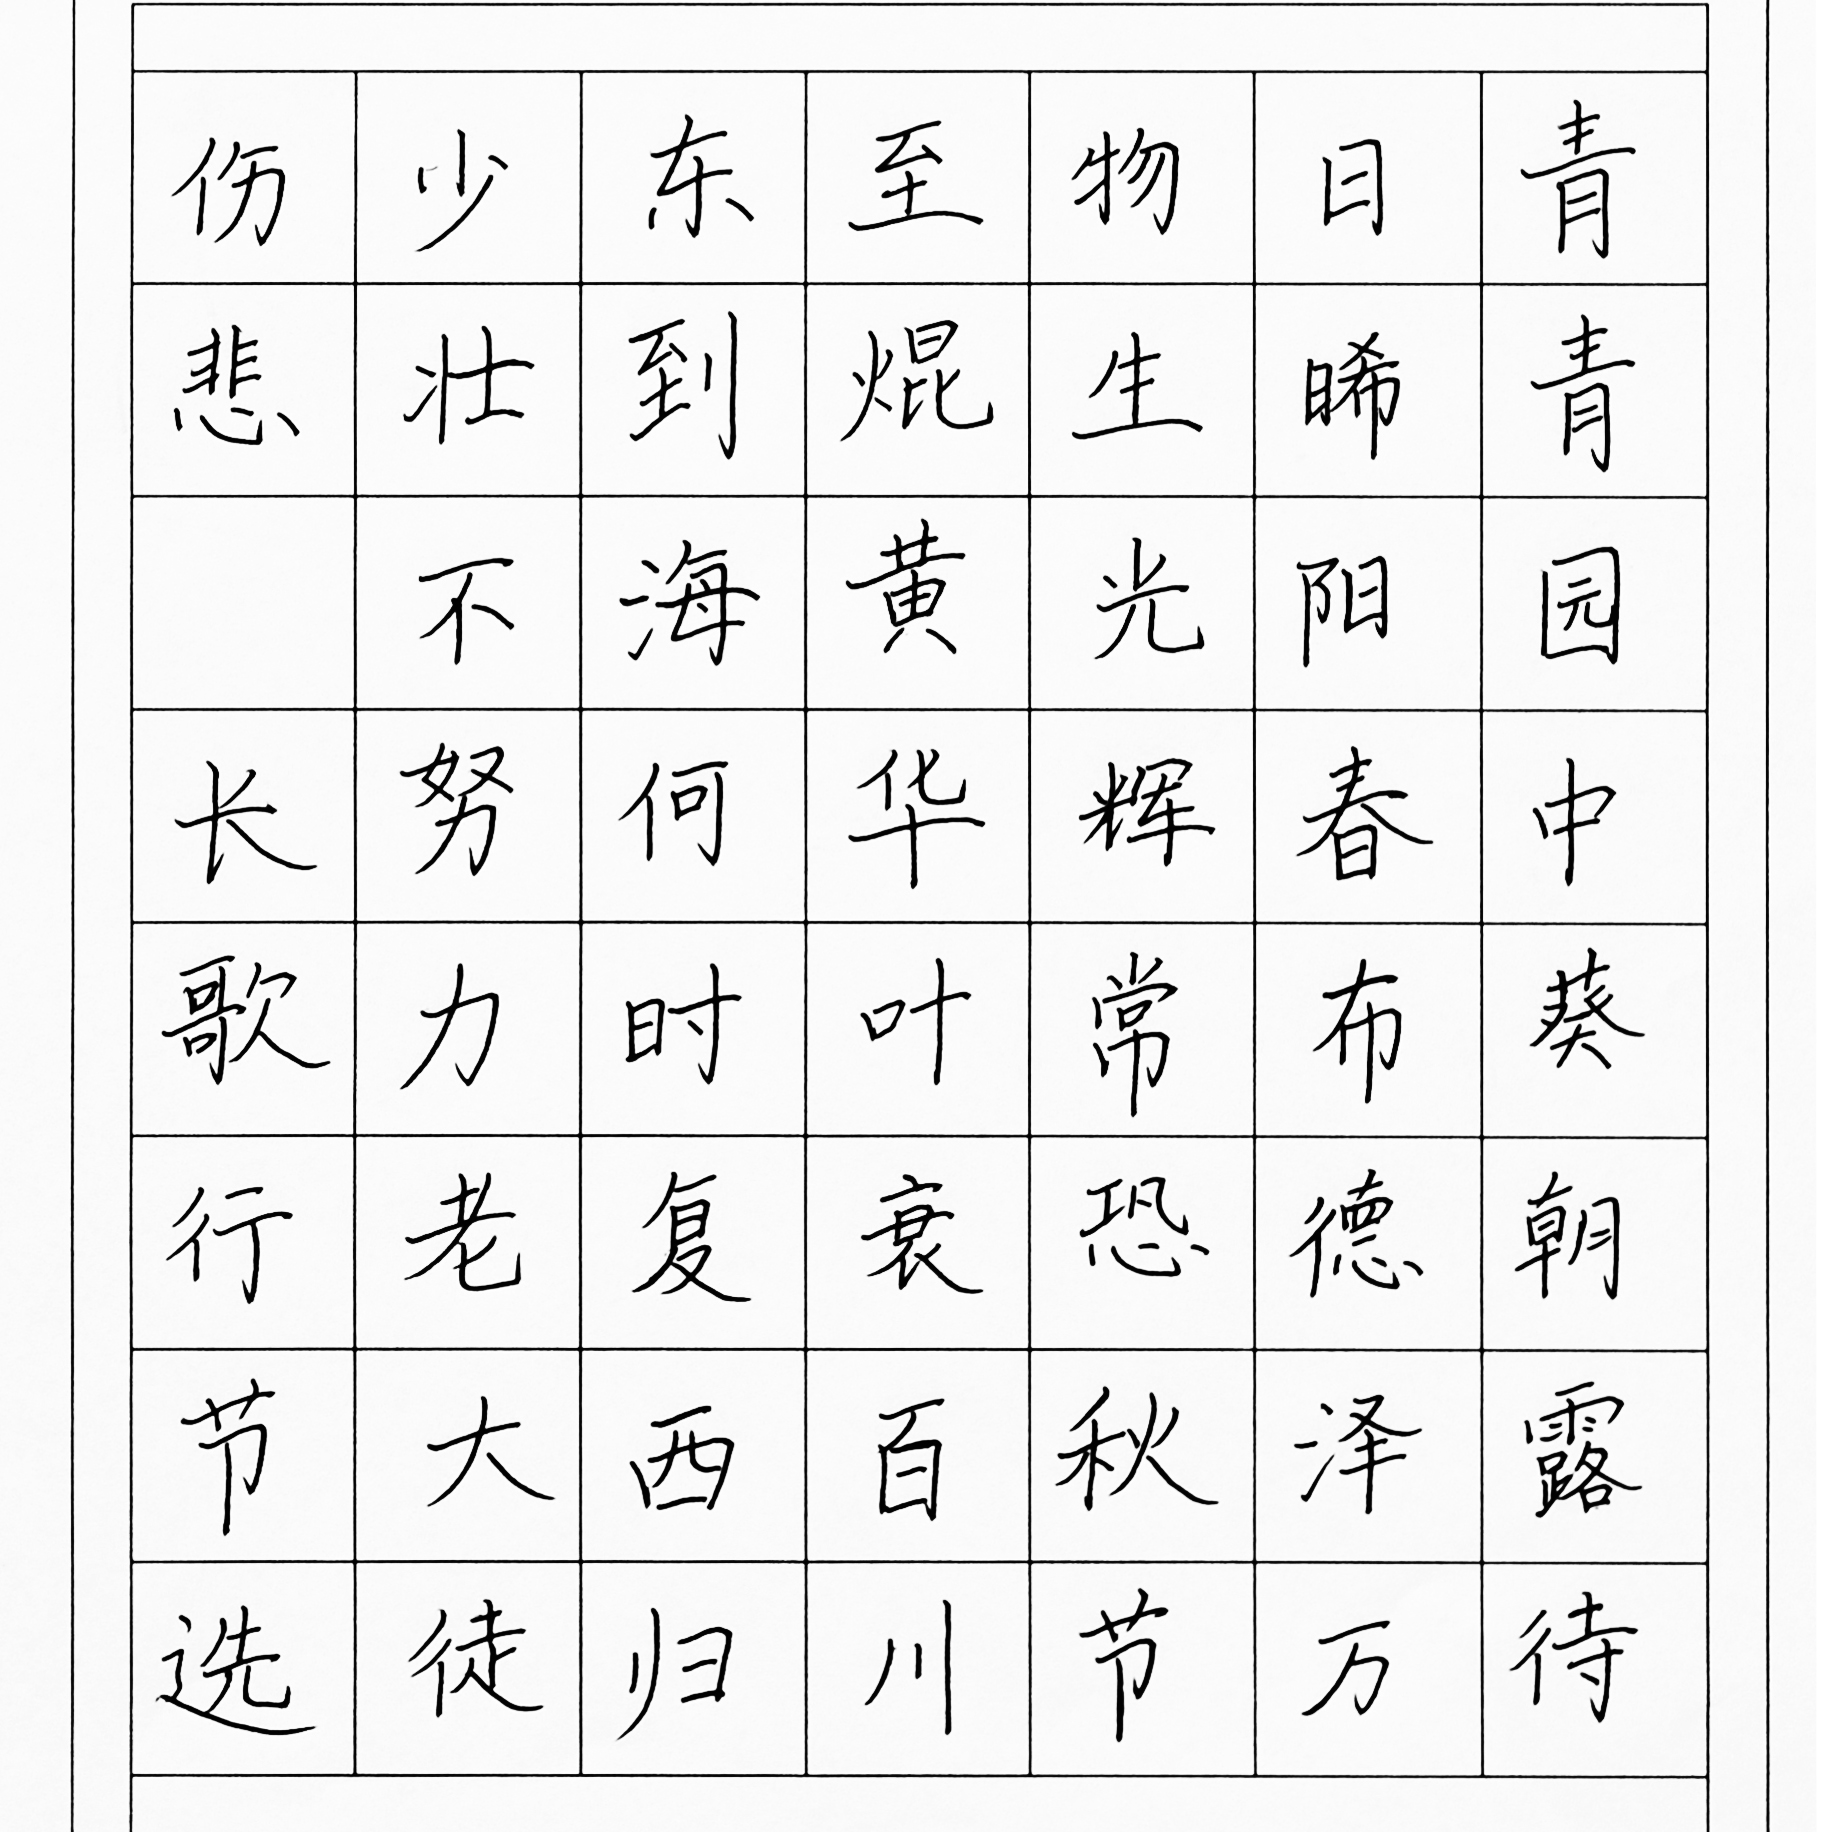 青青园中葵朝露待
日晞阳春布德泽万
物生光辉常恐秋节
至焜黄华叶衰百川
东到海何时复西归
少壮不努力老大徒
伤悲 长歌行节选